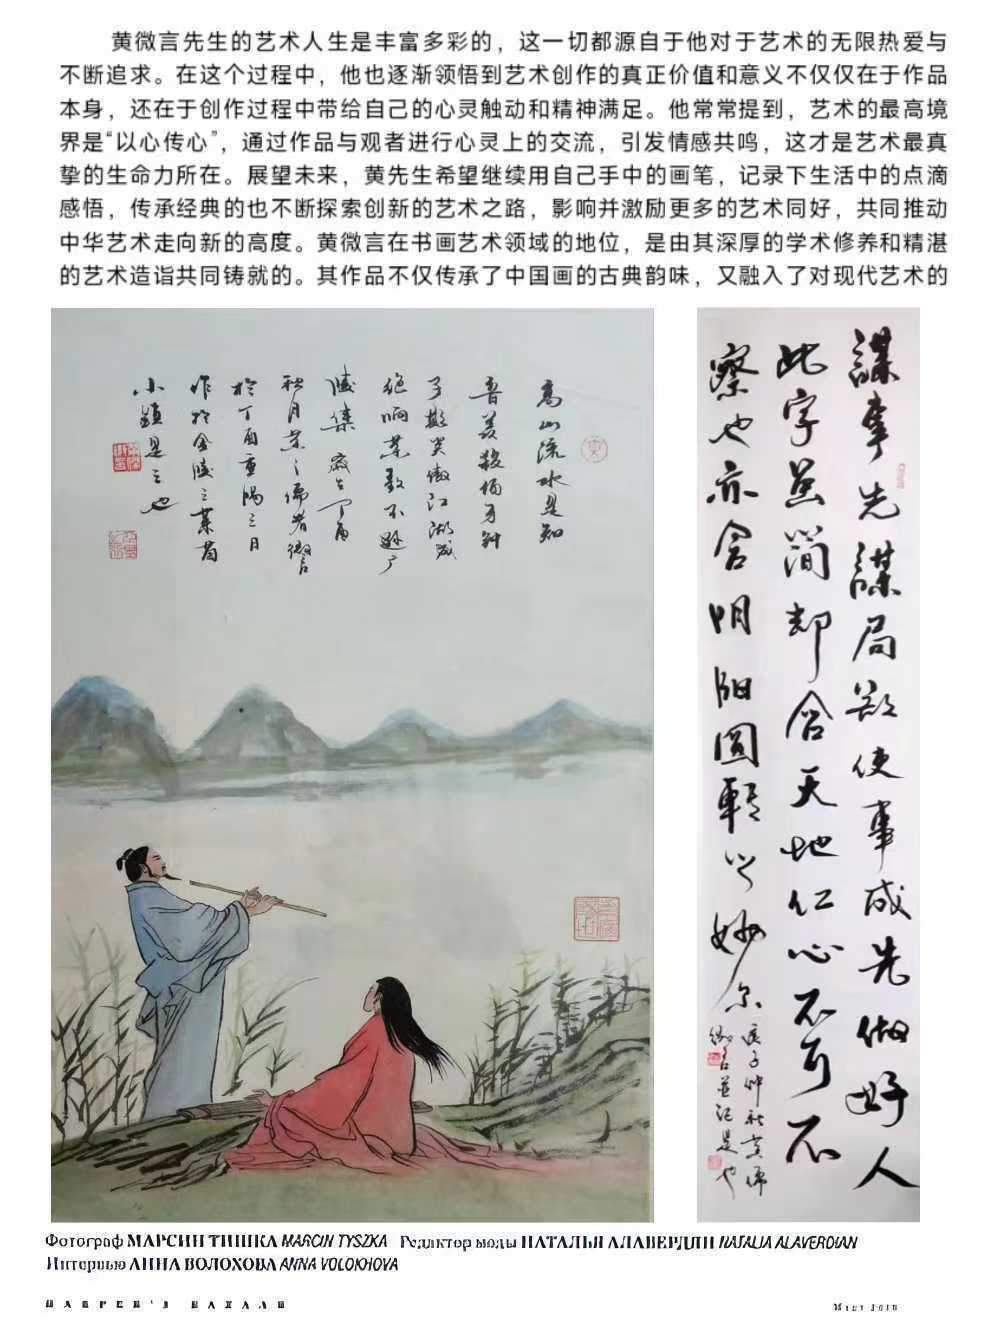 黄微言先生的艺术人生是丰富多彩的，这一切都源自于他对于艺术的无限热爱与
不断追求。在这个过程中，他也逐渐领悟到艺术创作的真正价值和意义不仅仅在于作品
本身，还在于创作过程中带给自己的心灵触动和精神满足。他常常提到，艺术的最高境
界是“以心传心”，通过作品与观者进行心灵上的交流，引发情感共鸣，这才是艺术最真
挚的生命力所在。展望未来，黄先生希望继续用自己手中的画笔，记录下生活中的点滴
感悟，传承经典的也不断探索创新的艺术之路，影响并激励更多的艺术同好，共同推动
中华艺术走向新的高度。黄微言在书画艺术领域的地位，是由其深厚的学术修养和精湛
的艺术造诣共同铸就的。其作品不仅传承了中国画的古典韵味，又融入了对现代艺术的
高山流水是知
音羡殺伯牙
子期笑傲江湖成
絶响
丁酉
秋月
於丁酉重陽三日
作於金陵之
小
是之也
謀事先謀局欲使事成先做好人
此字虽简却含天地仁心不可不
察也亦含阴阳圆転之妙尔
庚子仲秋黄儒
微言并记是也
Фотограф МАРСИН ТИШКА MARCIN TYSZKA Редактор моды НАТАЛЬЯ АЛАВЕРДЯН NATALIA ALAVERDIAN
Интервью АННА ВОЛОХОВА ANNA VOLOKHOVA